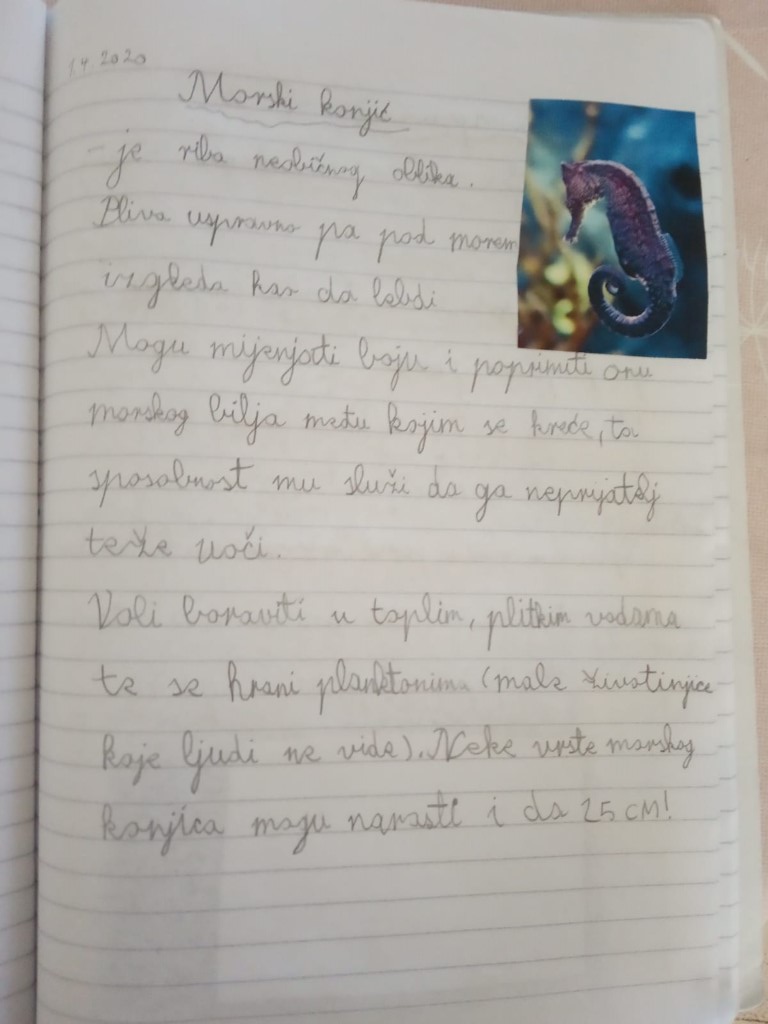 1.4.2020
Morski konjić
- je riba neobičnog oblika.
Pliva uspravno pa pod morem
izgleda kao da lebdi
Mogu mijenjati boju i poprimiti onu
morskog bilja među kojim se kreće, ta
sposobnost mu služi da ga neprijatelj
teže uoči.
Voli boraviti u toplim, plitkim vodama
te se hrani planktonima (male životinjice
koje ljudi ne vide). Neke vrste morskog
konjica mogu narasti i do 25 cm!